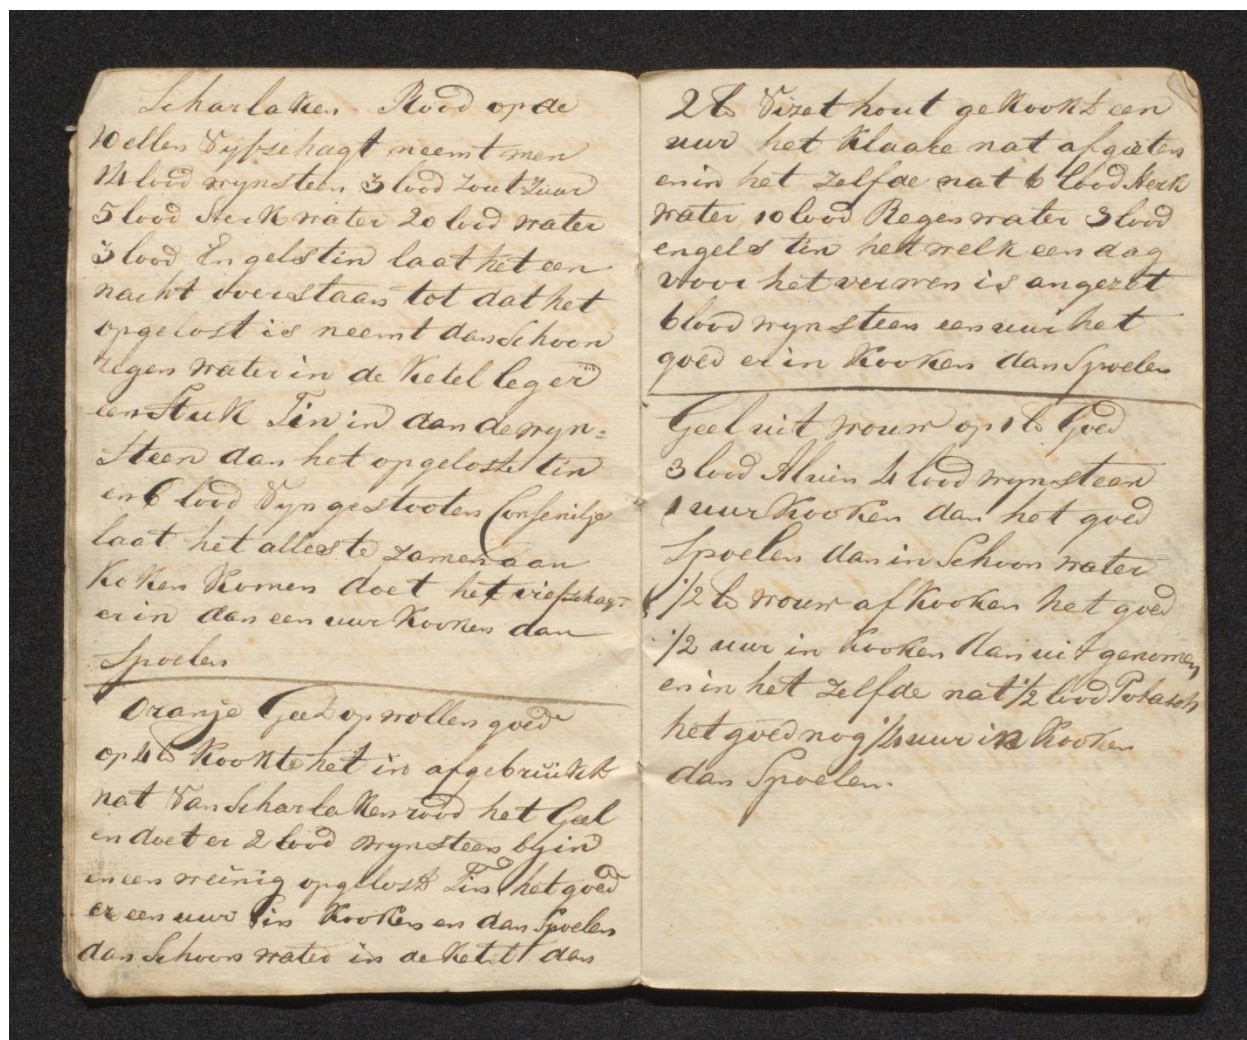 Scharlaken Rood op de
10 ellen Vyfschagt neemt men
14 lood wynsteen 3 lood Zout Zuur
5 lood Sterk water 20 lood water
3 lood Engels tin laat het een
nacht overstaan tot dat het
opgelost is neemt dan Schoon
regen water in de Ketel leg er
een Stuk Tin in dan de wyn=
steen dan het opgeloste tin
en 6 lood Vyn gestooten Consenilje
laat het alles te zamen aan
Koken Komen doet het viefschag-
er in dan een uur Kooken dan
Spoelen
Oranje Geel op wollen goed
op 4 ℔ Kookt het in afgebruikt
nat Van Scharlaken rood het Geel
en doet er 2 lood wynsteen by in
en een weinig opgelost Tin het goed
er een uur in Kooken en dan Spoelen
dan Schoon water in de Ketel dan
2 ℔ Vizet hout gekookt een
uur het Klaare nat afgieten
en in het zelfde nat 6 lood Sterk
water 10 lood Regen water 3 lood
engels tin het welk een dag
voor het verwen is angezet
6 lood wynsteen een uur het
goed er in Kooken dan Spoelen
Geel uit wouw op 1 ℔ Goed
3 lood Aluin 4 lood wynsteen
1 uur Kooken dan het goed
Spoelen dan in Schoon water
1/2 ℔ wouw af Kooken het goed
1/2 uur in Kooken dan uit genomen
en in het zelfde nat 1/2 lood Potasch
het goed nog 1/4 uur in Kooken
dan Spoelen